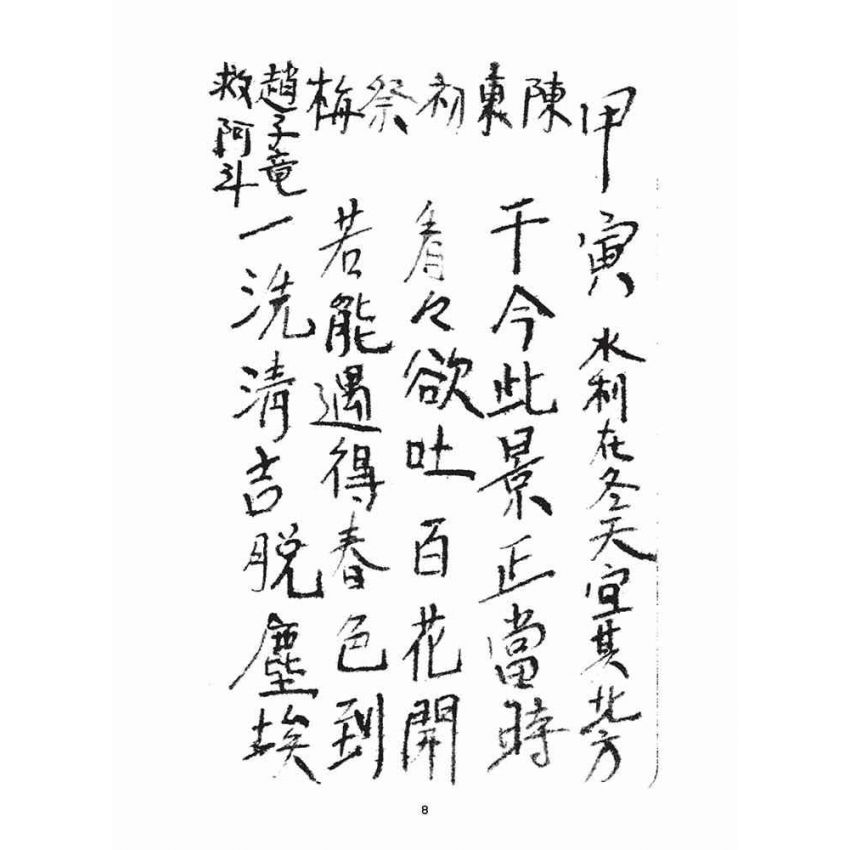 甲寅 水利在冬天宜其北方
陳東初祭梅
于今此景正當時
看々欲吐百花開
若能遇得春色到
趙子竜
救阿斗
一洗清吉脫塵埃
8